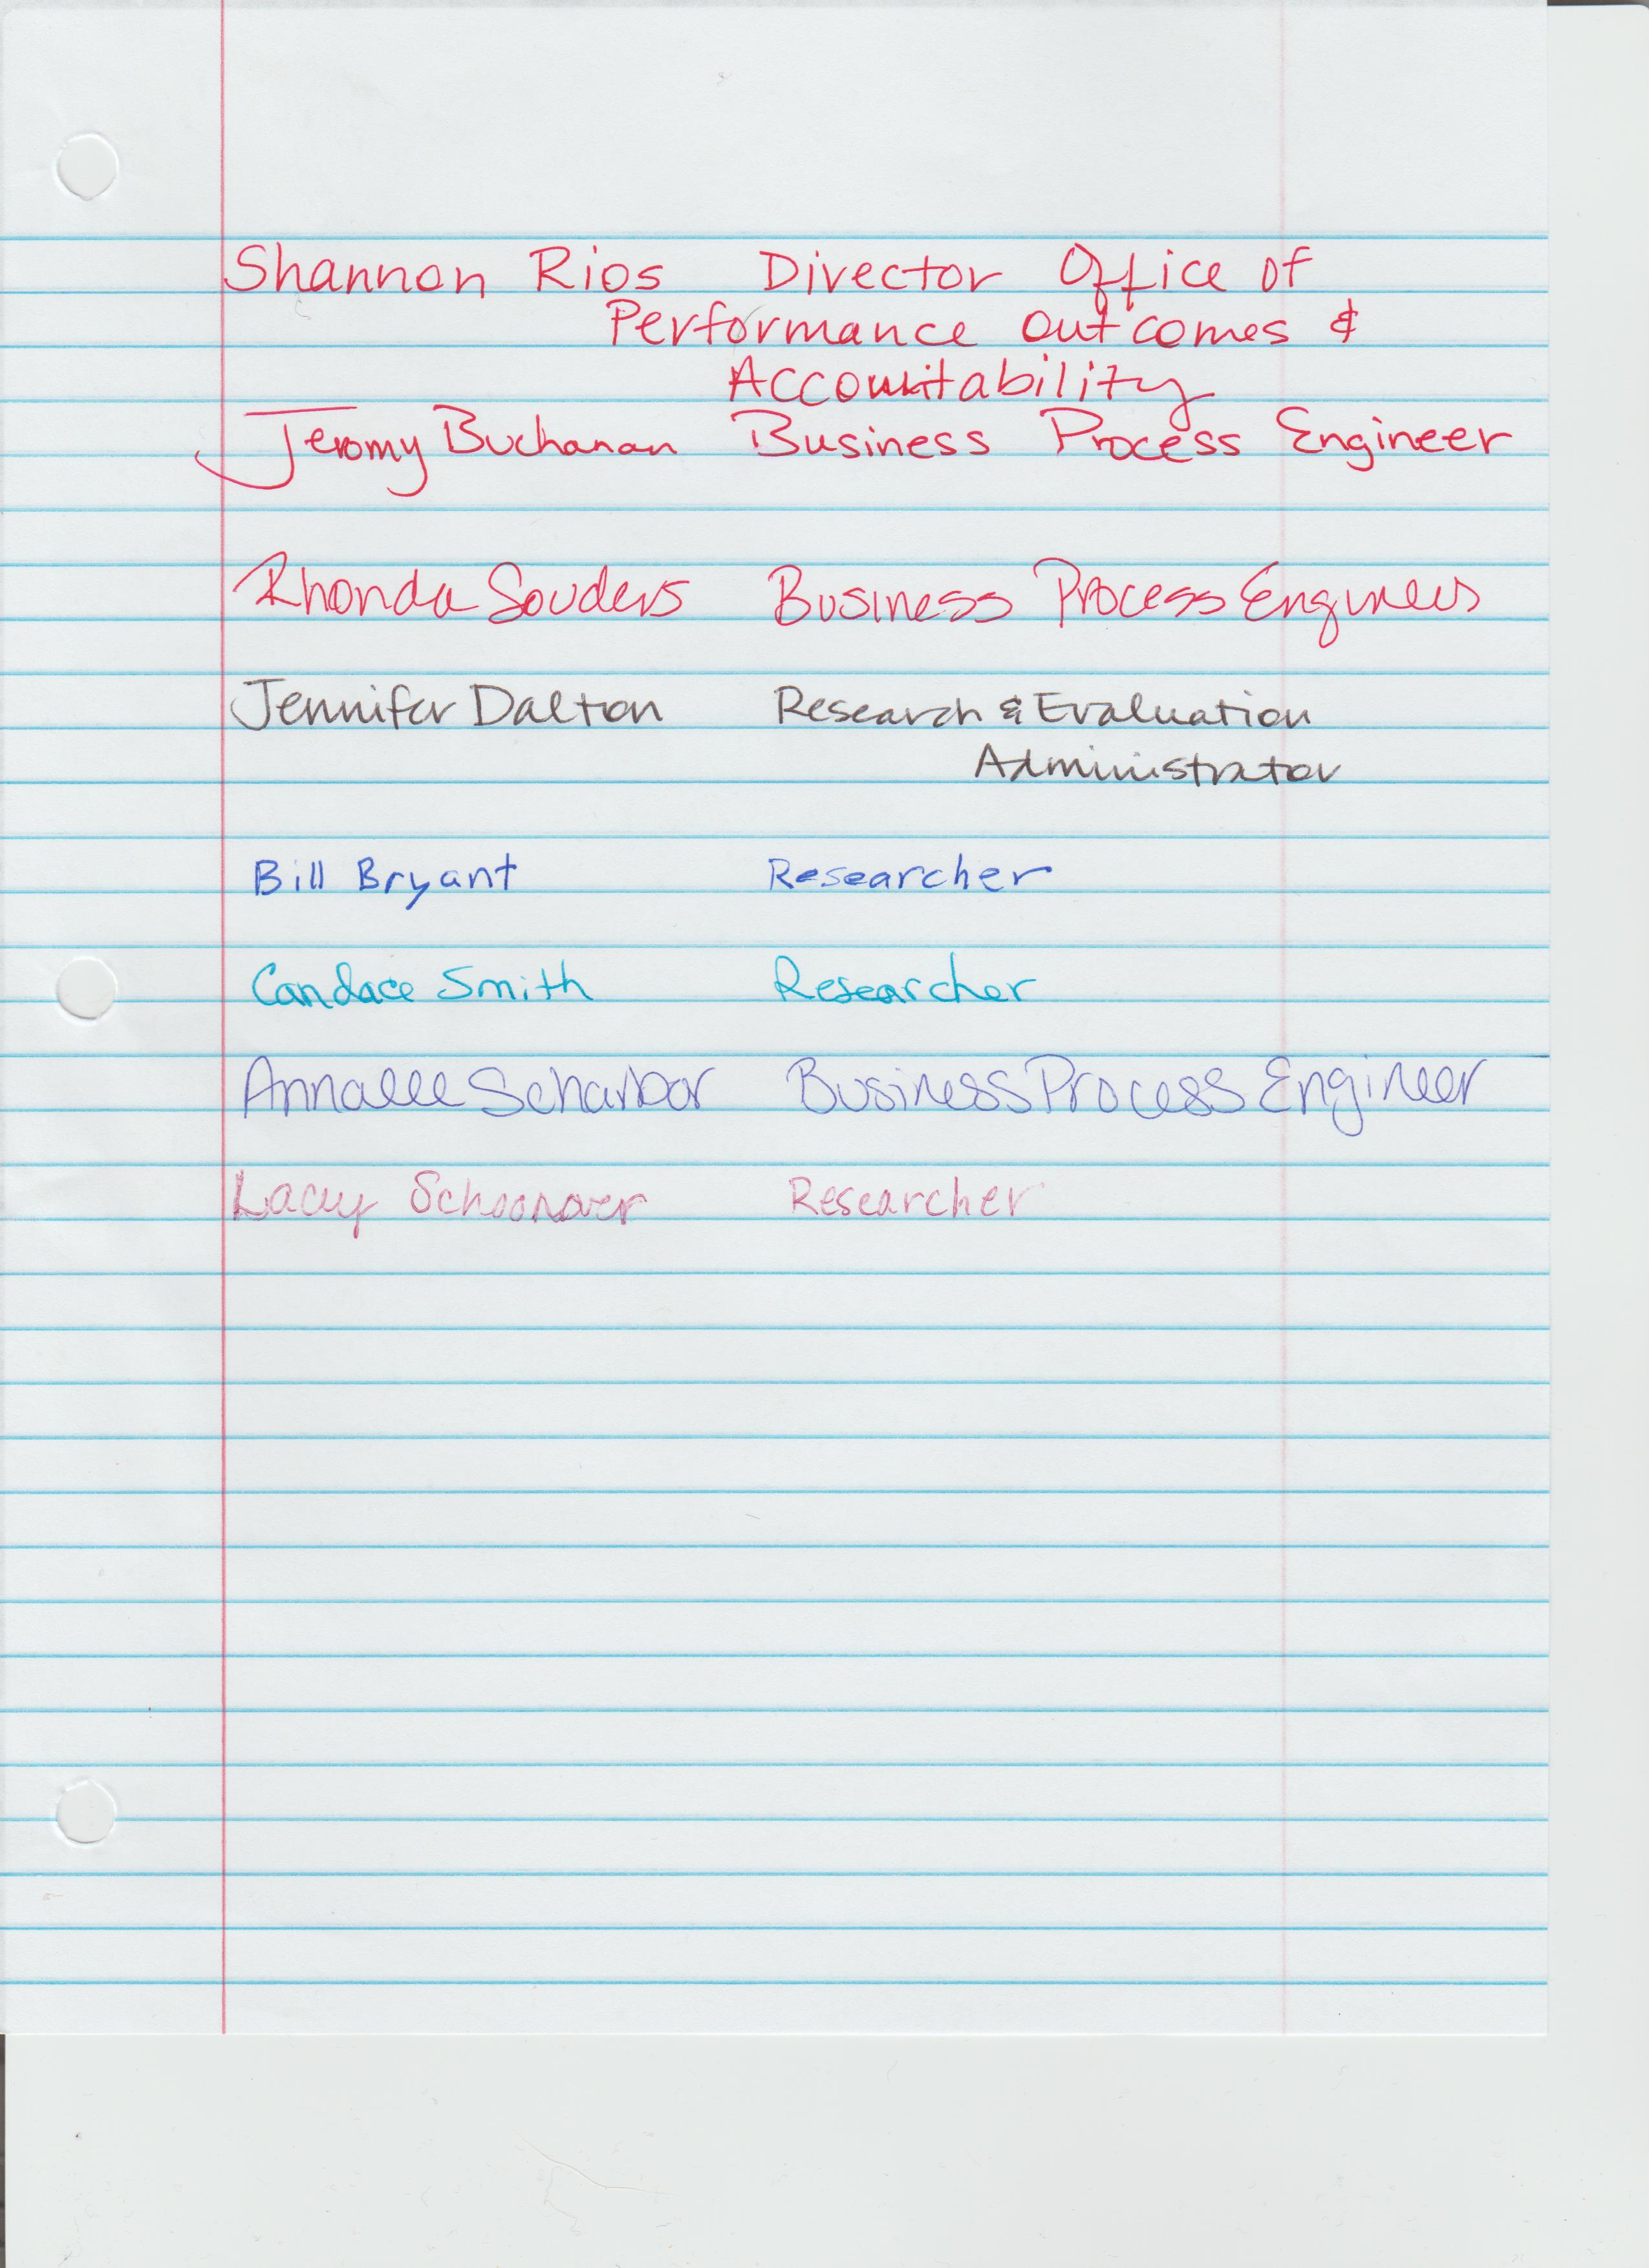 Shannon Rios Director Office of
Performance Outcomes &
Accountability
Jeromy Buchanan Business Process Engineer
Rhonda Souders Business Process Engineer
Jennifer Dalton Research & Evaluation
Administrator
Bill Bryant Researcher
Candace Smith Researcher
Annalee Scharbor Business Process Engineer
Lacey Schoonover Researcher